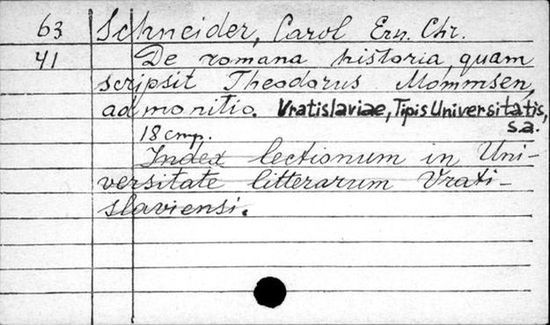 63 Schneider, Carol Ern. Chr.
41 De romana historia, quam
scripsit Theodorus Mommsen,
admonitio. Vratislaviae, Tipis Universitatis,
s.a.
18 cmp.
Index lectionum in Uni-
versitate litterarum Vrati-
slaviensi.